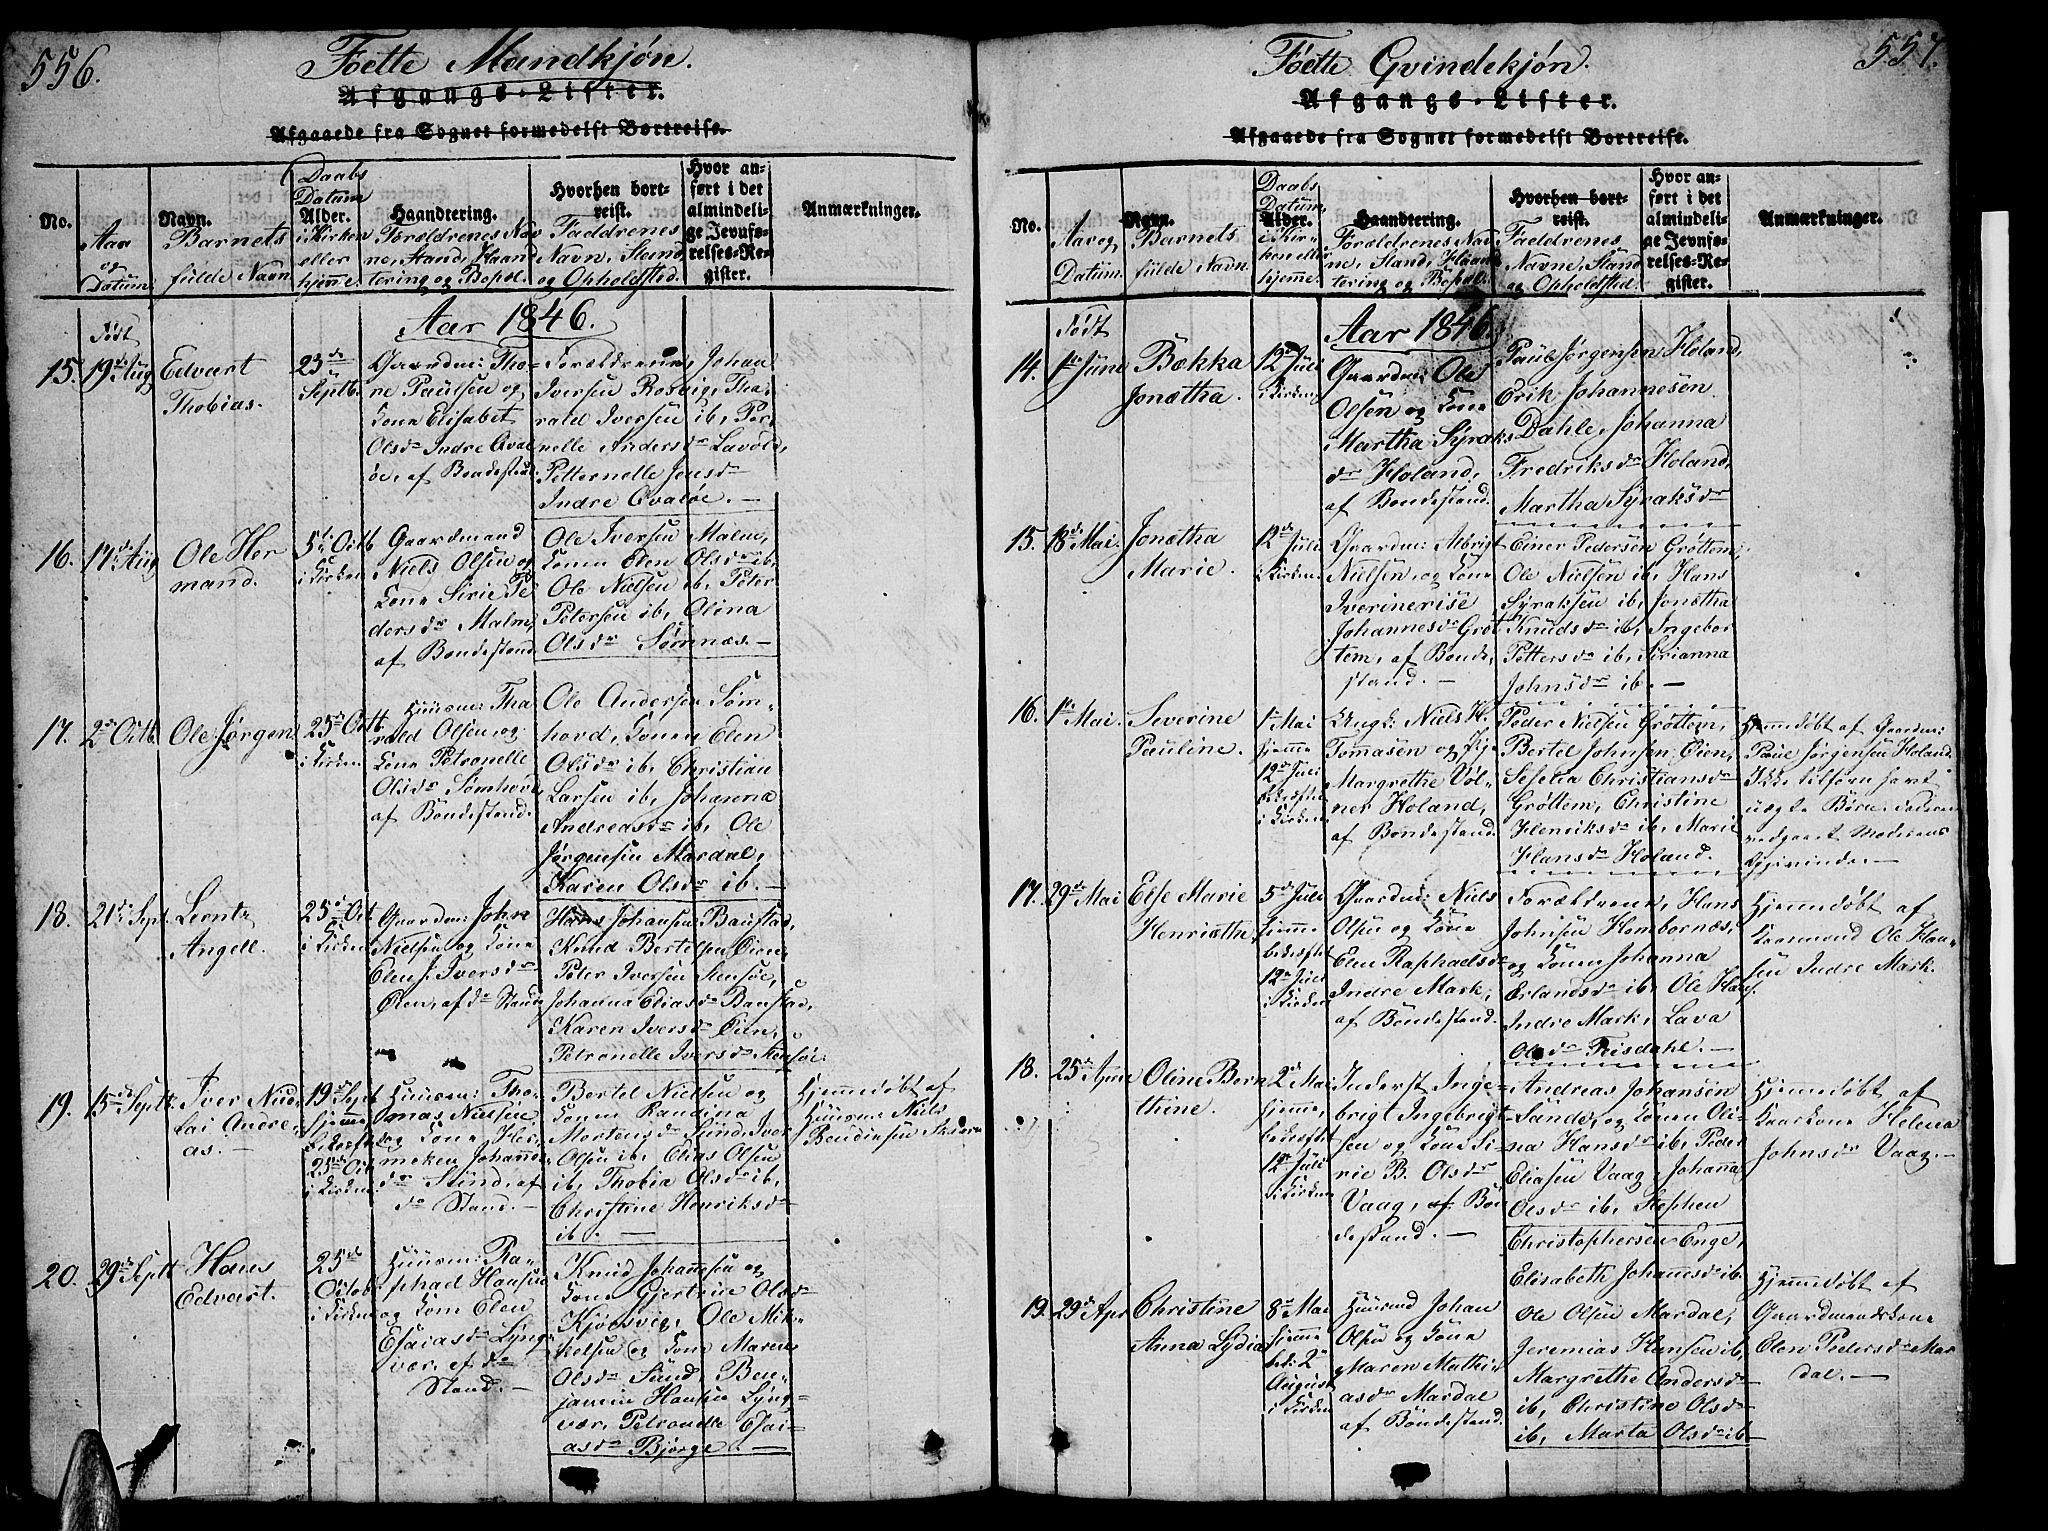 556.
Fødte Mandkjøn.
Afgangs-Lister.
Afgaaede fra Sognet formedelst Bortreise.
No.
Aar
og
Datum.
Navn.
Barnets
fulde Navn
Daabs
Datum
Alder.
i Kirken
eller
hjemme.
Haandtering.
Forældrenes Nav
ne, Stand, Haan
tering og Bopæl.
Hvorhen bort-
reist.
Faddrenes
Navn, Stand
og Opholdsted.
Hvor an-
ført i det
almindeli-
ge Jevnfø-
relses-Re-
gister.
Anmærkninger.
Født
Aar 1846.
15.
19de Aug
Edvart
Thobias.
23de
Septb.
Gaardm: Tho-
re Paulsen og
Kone Elisabet
Olsdr Indre Qval
øe, af Bondestand.
Forældrene, Johan
Iversen Rosvig, Tha-
rald Iversen ib, Per-
nelle Andersdr Lavold,
Petternelle Jensdr
Indre Qvaløe. —
16.
17de Aug
Ole Her
mand.
5te Octb
i Kirken
Gaardmand
Niels Olsen og
Kone Sirie Pe
dersdr Malm,
af Bondestand.
Ole Iversen Malm,
Konen Elen Olsdr ib,
Ole Nielsen ib, Peter
Petersen ib, Olina
Olsdr Sømnæs. —
17.
2de Octb
Ole Jørgen
25de Octb
i Kirken
Huusm: Tha
rald Olsen, og
Kone Petronelle
Olsdr Sømhovd
af Bondestand.
Ole Andersen Søm-
hovd, Konen Elen
Olsdr ib, Christian
Larsen ib, Johanna
Andreasdr ib, Ole
Jørgensen Mardal,
Karen Olsdr ib. —
18.
21de Sept.
Leonts
Angell.
25de Oct
i Kirken
Gaardm: John
Nielsen og Kone
Elen S. Iversdr
Øien, af do Stand
Hans Johansen Baustad,
Knud Bertelsen Øien,
Peter Iversen Stensøe,
Johanna Eliasdr Baustad,
Karen Iversdr Øien,
Petronelle Iversdr Stensøe
19.
15de Septb.
Iver Nico-
lai Andre-
as. —
19de Sept
hjemme
bekræftet
25de Oct
i Kirken
Huusm: Tho-
mas Nielsen
og Kone Her-
meken Johannes
dr Sund, af
do Stand. —
Bertel Nielsen og
Konen Randina
Mortensdr Sund, Iver
Olsen ib, Elias Olsen
ib, Thobia Olsdr ib,
Christine Henriksdr
ib. —
Hjemmedøbt af
Huusm: Niels
Bendiksen
20.
29de Septb
Hans
Edvart.
25de
Octob
i Kirken
Huusm: Ra-
phael Hansen
og Kone Elen
Esaiasdr Lyng-
vær, af do
Stand. —
Knud Johansen og
Kone Gjertrue Olsdr
Kjølsvig, Ole Mik-
kelsen og Kone Maren
Olsdr Sund, Ben-
jamin Hansen Lyng-
vær, Petronelle Esai-
asdr Bjørge. —
557.
Fødte Qvindekjøn.
Afgangs-Lister.
Afgaaede fra Sognet formedelst Bortreise.
No.
Aar og
Datum.
Navn.
Barnets
fulde Navn
Daabs
Datum,
Alder.
i Kir-
ken eller
hjemme.
Haandtering.
Forældrenes Nav
ne, Stand, Haand
tering og Bopæl.
Hvorhen bort-
reist.
Faddrenes
Navne, Stand
og Opholdsted.
Hvor an-
ført i det
almindeli-
ge Jevnfø-
relses-Re-
gister.
Anmærkninger.
Født
Aar 1846.
14.
1ste Juni
Bækka
Jonetha.
12te Juli
i Kirken
Gaardm: Ole
Olsen og Kone
Martha Syraks
dr Holand,
af Bondestand.
Paul Jørgensen Holand,
Erik Johannesen
Dahle, Johanna
Fredriksdr Holand,
Martha Syraksdr
15.
18de Mai.
Jonetha
Marie.
12te Juli
i Kirken
Gaardm: Albrigt
Nielsen, og Kone
Iverinerise
Johannesdr Grøt
tem, af Bonde
stand. —
Einer Pedersen Grøttem,
Ole Nielsen ib, Hans
Syraksen ib, Jonetha
Knudsdr ib, Ingebor
Pettersdr ib, Sirianna
Johnsdr ib. —
16.
1ste Mai
Severine
Pauline.
1ste Mai
hjemme
12te Juli
bekræftet
i Kirken
Ungk: Niels H.
Tomasen og Pige
Margrethe Vol-
ner Holand,
af Bondestand.
Peder Nielsen Grøttem,
Bertel Johnsen Øien,
Seselia Christiansdr
Grøttem, Christine
Henriksdr ib, Marie
Hansdr Holand.
Hjemmedøbt af Gaardm:
Paul Jørgensen Holand.
Ikke tilforn havt
uægte Børn. Faderen
vedgaaet Moderens
Opgivende. —
17.
29de Mai
Else Marie
Henriethe
5te Juli
hjemme
bekræftet
12te Juli
i Kirken
Gaardm: Niels
Olsen og Kone
Elen Raphaelsdr
Indre Mark,
af Bondestand.
Forældrene, Hans
Johnsen Hombornæs,
og Konen Johanna
Erlandsdr ib, Ole Hans.
Indre Mark, Lava
Olsdr Teisdahl. —
Hjemmedøbt af
Kaarmand Ole Han-
sen Indre Mark.
18.
25de Apriel
Oline Bern
thine.
2de Mai
hjemme,
bekræftet
12te Juli
i Kirken
Inderst Inge-
brigt Ingebrigt-
sen og Kone Si-
rie B. Olsdr
Vaag, af Bon
destand. —
Andreas Johansen
Sande, og Konen Oli-
na Hansdr ib, Peder
Eliasen Vaag, Johanna
Olsdr ib, Stephen
Christophersen Enge,
Elisabeth Johannesdr ib.
Hjemmedøbt af
Kaarkone Helena
Johnsdr Vaag. —
19.
29de Apr
Christine
Anna Lydia
8de Mai
hjemme
bek: 2den
August
i Kirken
Huusmd Johan
Olsen og Kone
Maren Mathi-
asdr Mardal
af Bondestand.
Ole Olsen Mardal,
Jeremias Hansen ib,
Margrethe Andersdr
ib, Christine Olsdr
ib, Marta Olsdr ib —
Hjemmedøbt af
Gaardmandskone
Elen Pedersdr Mar
dal. —